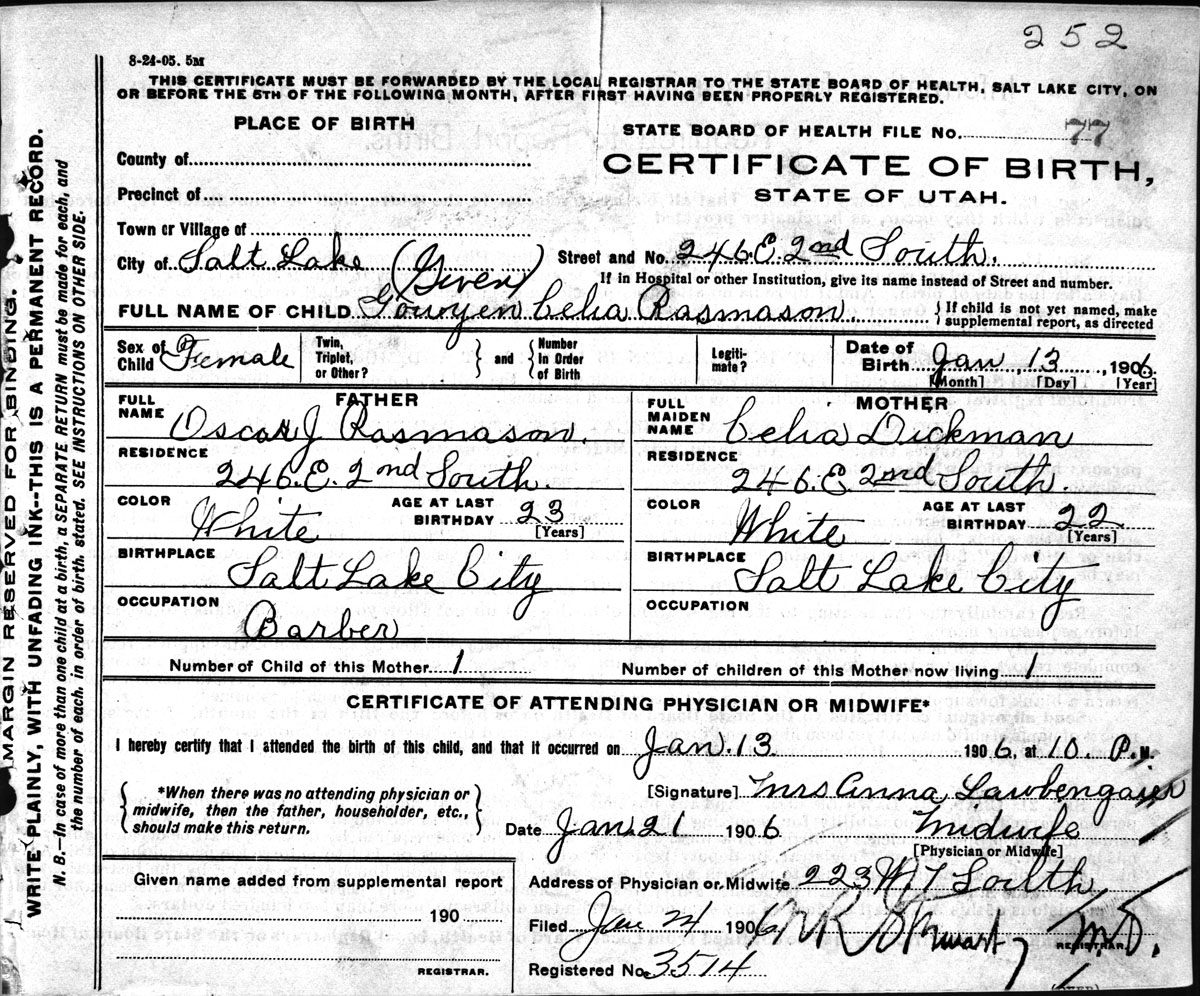 252
8-24-05. 5M
THIS CERTIFICATE MUST BE FORWARDED BY THE LOCAL REGISTRAR TO THE STATE BOARD OF HEALTH, SALT LAKE CITY, ON
OR BEFORE THE 5TH OF THE FOLLOWING MONTH, AFTER FIRST HAVING BEEN PROPERLY REGISTERED.
MARGIN RESERVED FOR BINDING.
WRITE PLAINLY, WITH UNFADING INK--THIS IS A PERMANENT RECORD.
N. B.—In case of more than one child at a birth, a SEPARATE RETURN must be made for each, and
the number of each, in order of birth, stated. SEE INSTRUCTIONS ON OTHER SIDE.
PLACE OF BIRTH
STATE BOARD OF HEALTH FILE No. 77
County of
CERTIFICATE OF BIRTH,
Precinct of
STATE OF UTAH.
Town or Village of
City of Salt Lake (Given) Street and No. 246 E. 2nd South.
If in Hospital or other Institution, give its name instead of Street and number.
FULL NAME OF CHILD Celia Rasmason { If child is not yet named, make
supplemental report, as directed
Sex of Child Female Twin, Triplet, or Other? } and { Number in Order of Birth Legiti-mate? Date of Birth Jan, 13, 1906
[Month] [Day] [Year]
FATHER MOTHER
FULL NAME Oscar J Rasmason. FULL MAIDEN NAME Celia Dickman
RESIDENCE 246. E. 2nd South. RESIDENCE 246. E. 2nd South.
COLOR White AGE AT LAST BIRTHDAY 23 [Years] COLOR White AGE AT LAST BIRTHDAY 22 [Years]
BIRTHPLACE Salt Lake City BIRTHPLACE Salt Lake City
OCCUPATION Barber OCCUPATION
Number of Child of this Mother 1 Number of children of this Mother now living 1
CERTIFICATE OF ATTENDING PHYSICIAN OR MIDWIFE*
I hereby certify that I attended the birth of this child, and that it occurred on Jan. 13 1906, at 10. P.M.
{ *When there was no attending physician or
midwife, then the father, householder, etc.,
should make this return. }
[Signature] Mrs Anna
Date Jan 21 1906 Midwife
[Physician or Midwife]
Given name added from supplemental report
Address of Physician or Midwife 223 W 7 South
190
Filed Jan 24 1906 M.D.
REGISTRAR.
REGISTRAR.
Registered No. 3514